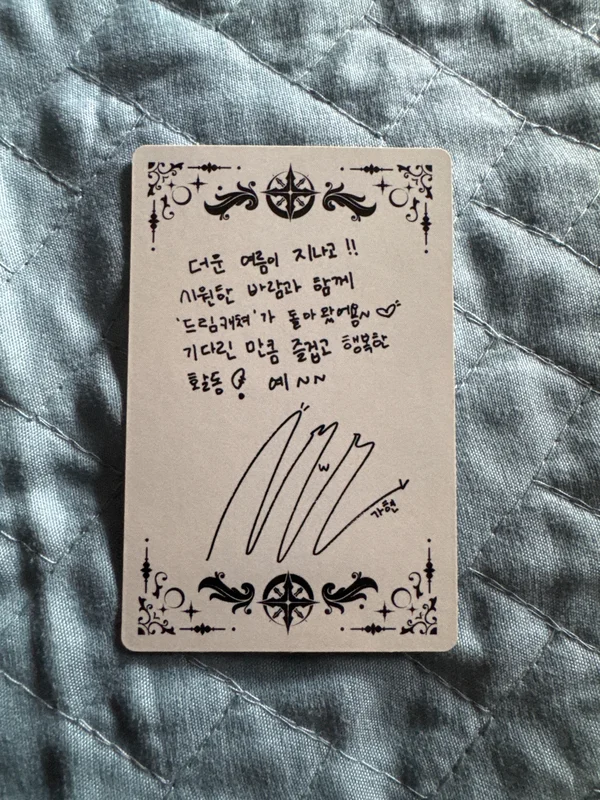 더운 여름이 지나고 !!
시원한 바람과 함께
'드림캐쳐'가 돌아왔어욤~ ♡
기다린 만큼 즐겁고 행복한
활동! 예~~
w
가현